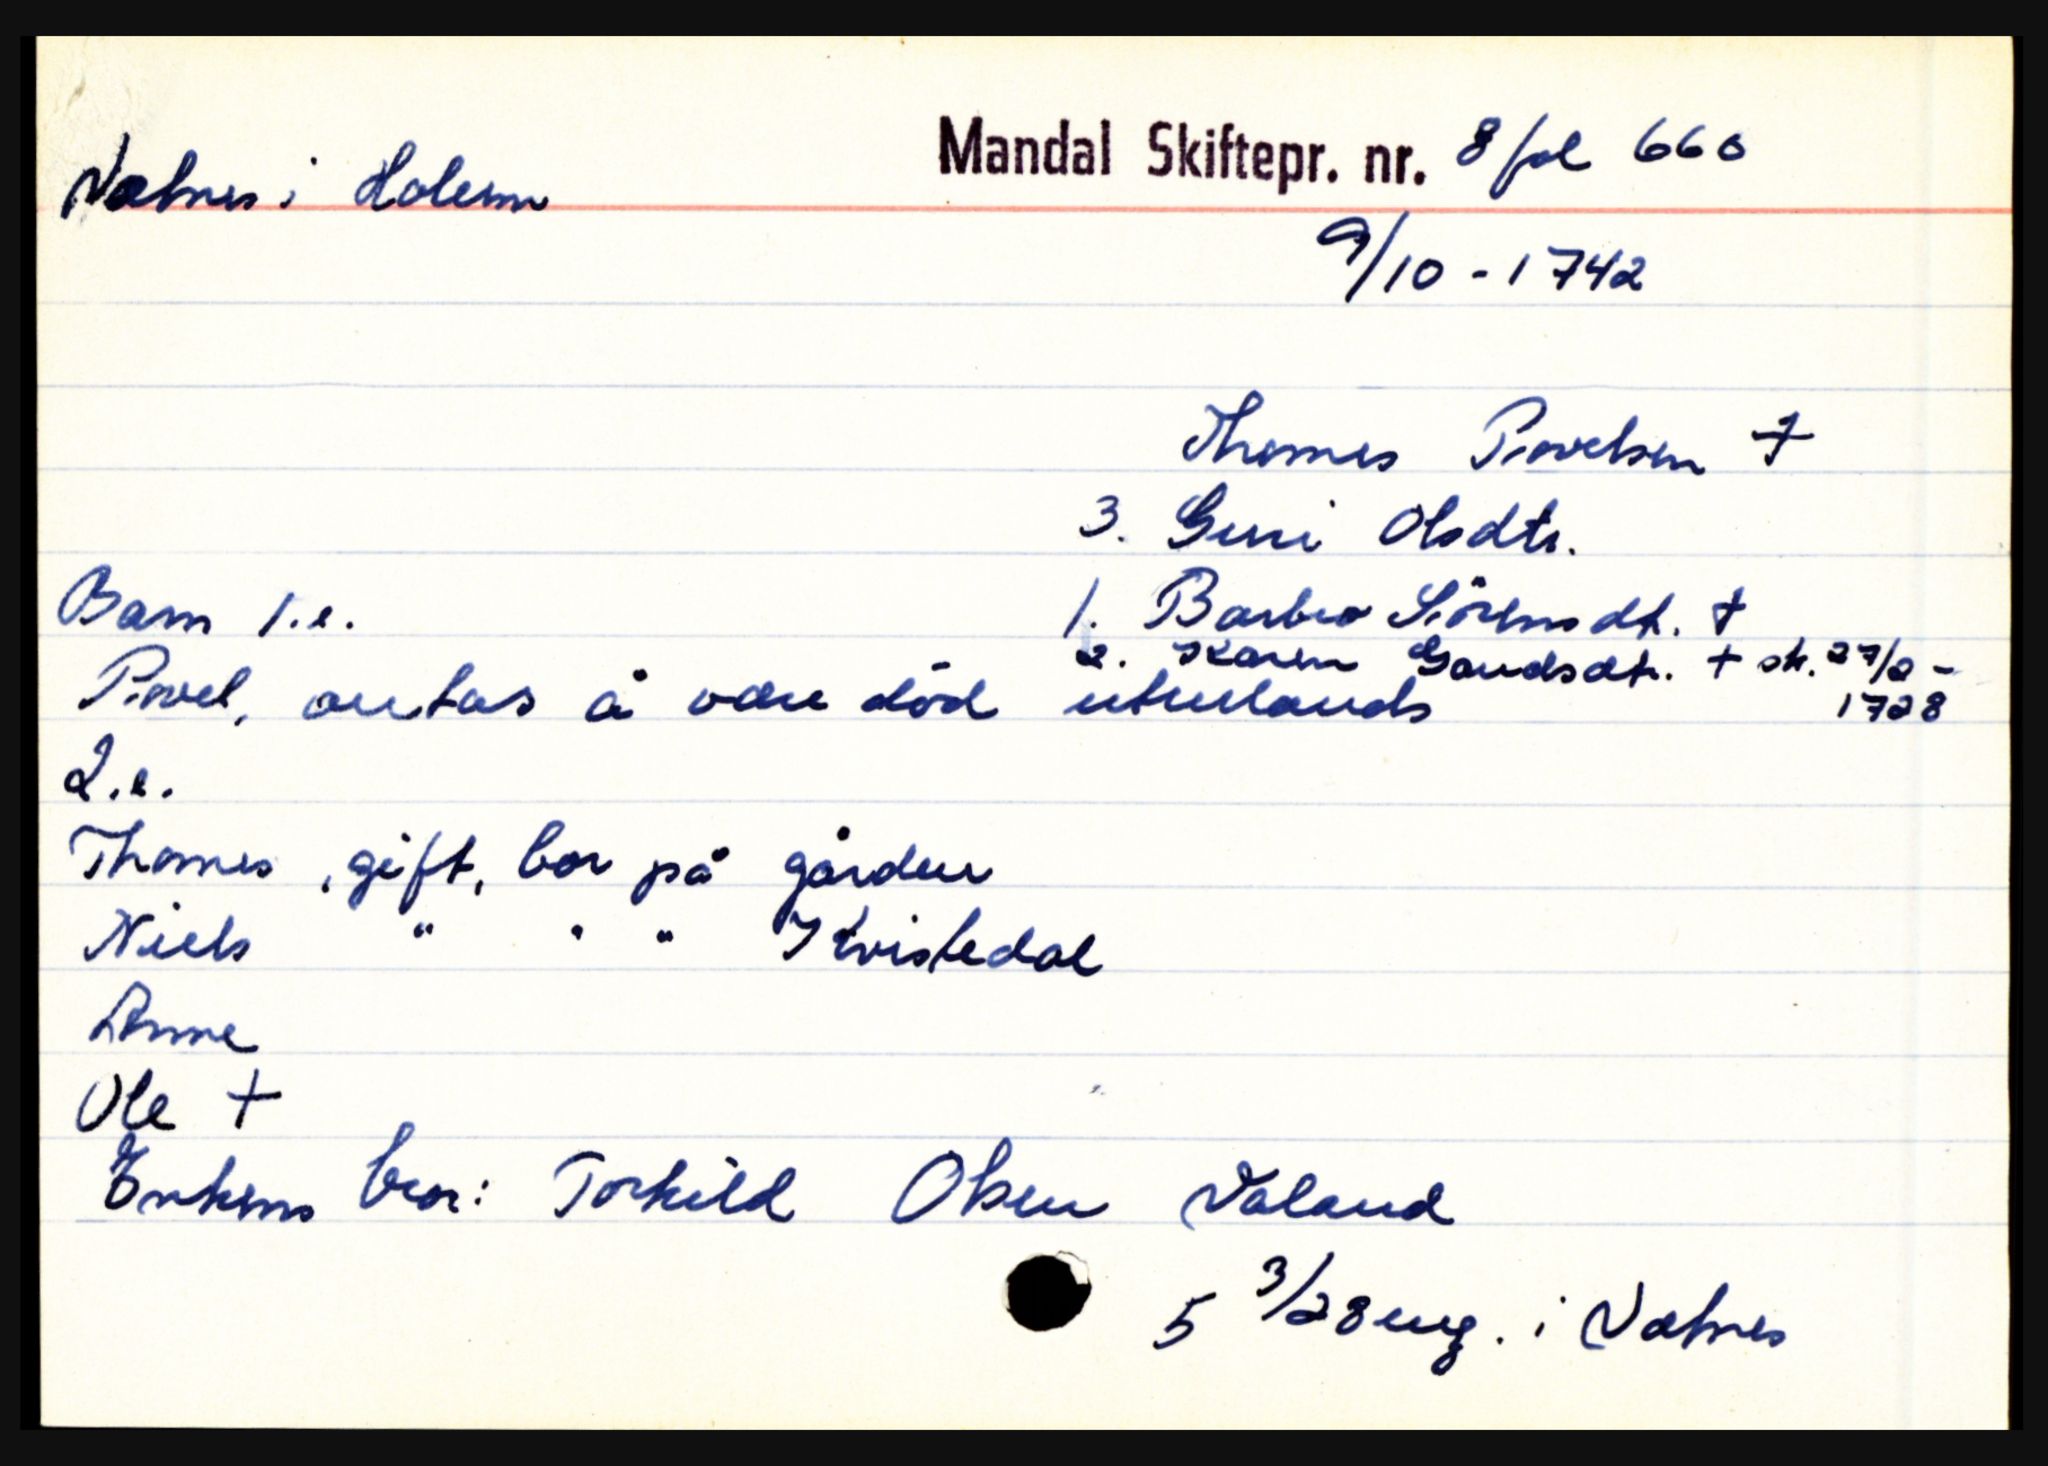 Mandal Skiftepr. nr. 8 fol 660
Valnes i Holum
9/10 - 1742
Thomes Povelsen †
3. Guri Olsdtr.
Barn 1.e.
1. Barbro Sörensdtr. †
2. Karen Gaudsdtr. † sk. 27/2 - 1728
Povel, antas å være död utenlands
2.e.
Thomes, gift, bor på gården
Niels " " " Kvistedal
Anne
Ole †
Enkens bror: Torkild Olsen Valand
5 3/28 eng. i Valnes